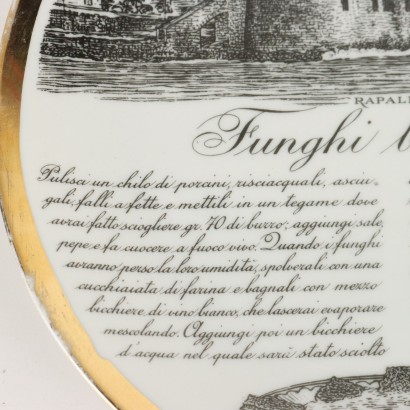 RAPALL
Funghi
Pulisci un chilo di porcini, risciacquali, asciu-
gali, falli a fette e mettili in un tegame dove
avrai fatto sciogliere gr. 70 di burro; aggiungi sale,
pepe e fa cuocere a fuoco vivo. Quando i funghi
avranno perso la loro umidità, spolverali con una
cucchiaiata di farina e bagnali con mezzo
bicchiere di vino bianco, che lascerai evaporare
mescolando. Aggiungi poi un bicchiere
d'acqua nel quale sarà stato sciolto